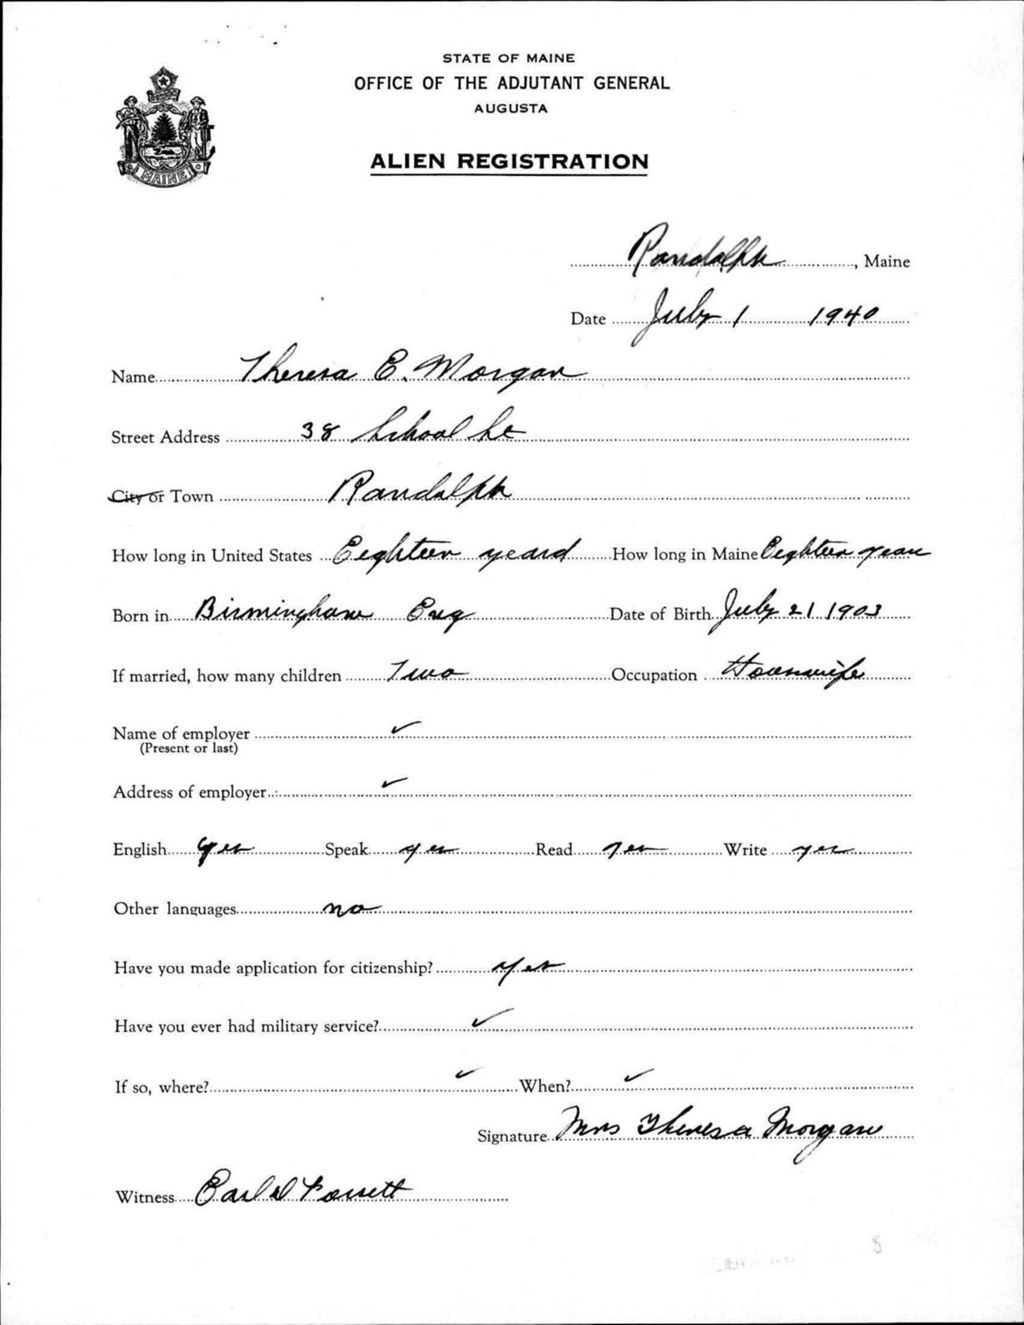 STATE OF MAINE
OFFICE OF THE ADJUTANT GENERAL
AUGUSTA
MAINE
ALIEN REGISTRATION
Randolph, Maine
Date July 1 1940
Name Theresa E. Morgan
Street Address 38 School St
City or Town Randolph
How long in United States Eighteen years How long in Maine Eighteen years
Born in Birmingham Eng Date of Birth July 21 1903
If married, how many children Two Occupation Housewife
Name of employer ✓
(Present or last)
Address of employer ✓
English yes Speak yes Read yes Write yes
Other languages no
Have you made application for citizenship? yes
Have you ever had military service? ✓
If so, where? ✓ When? ✓
Signature Mrs Theresa Morgan
Witness Earl